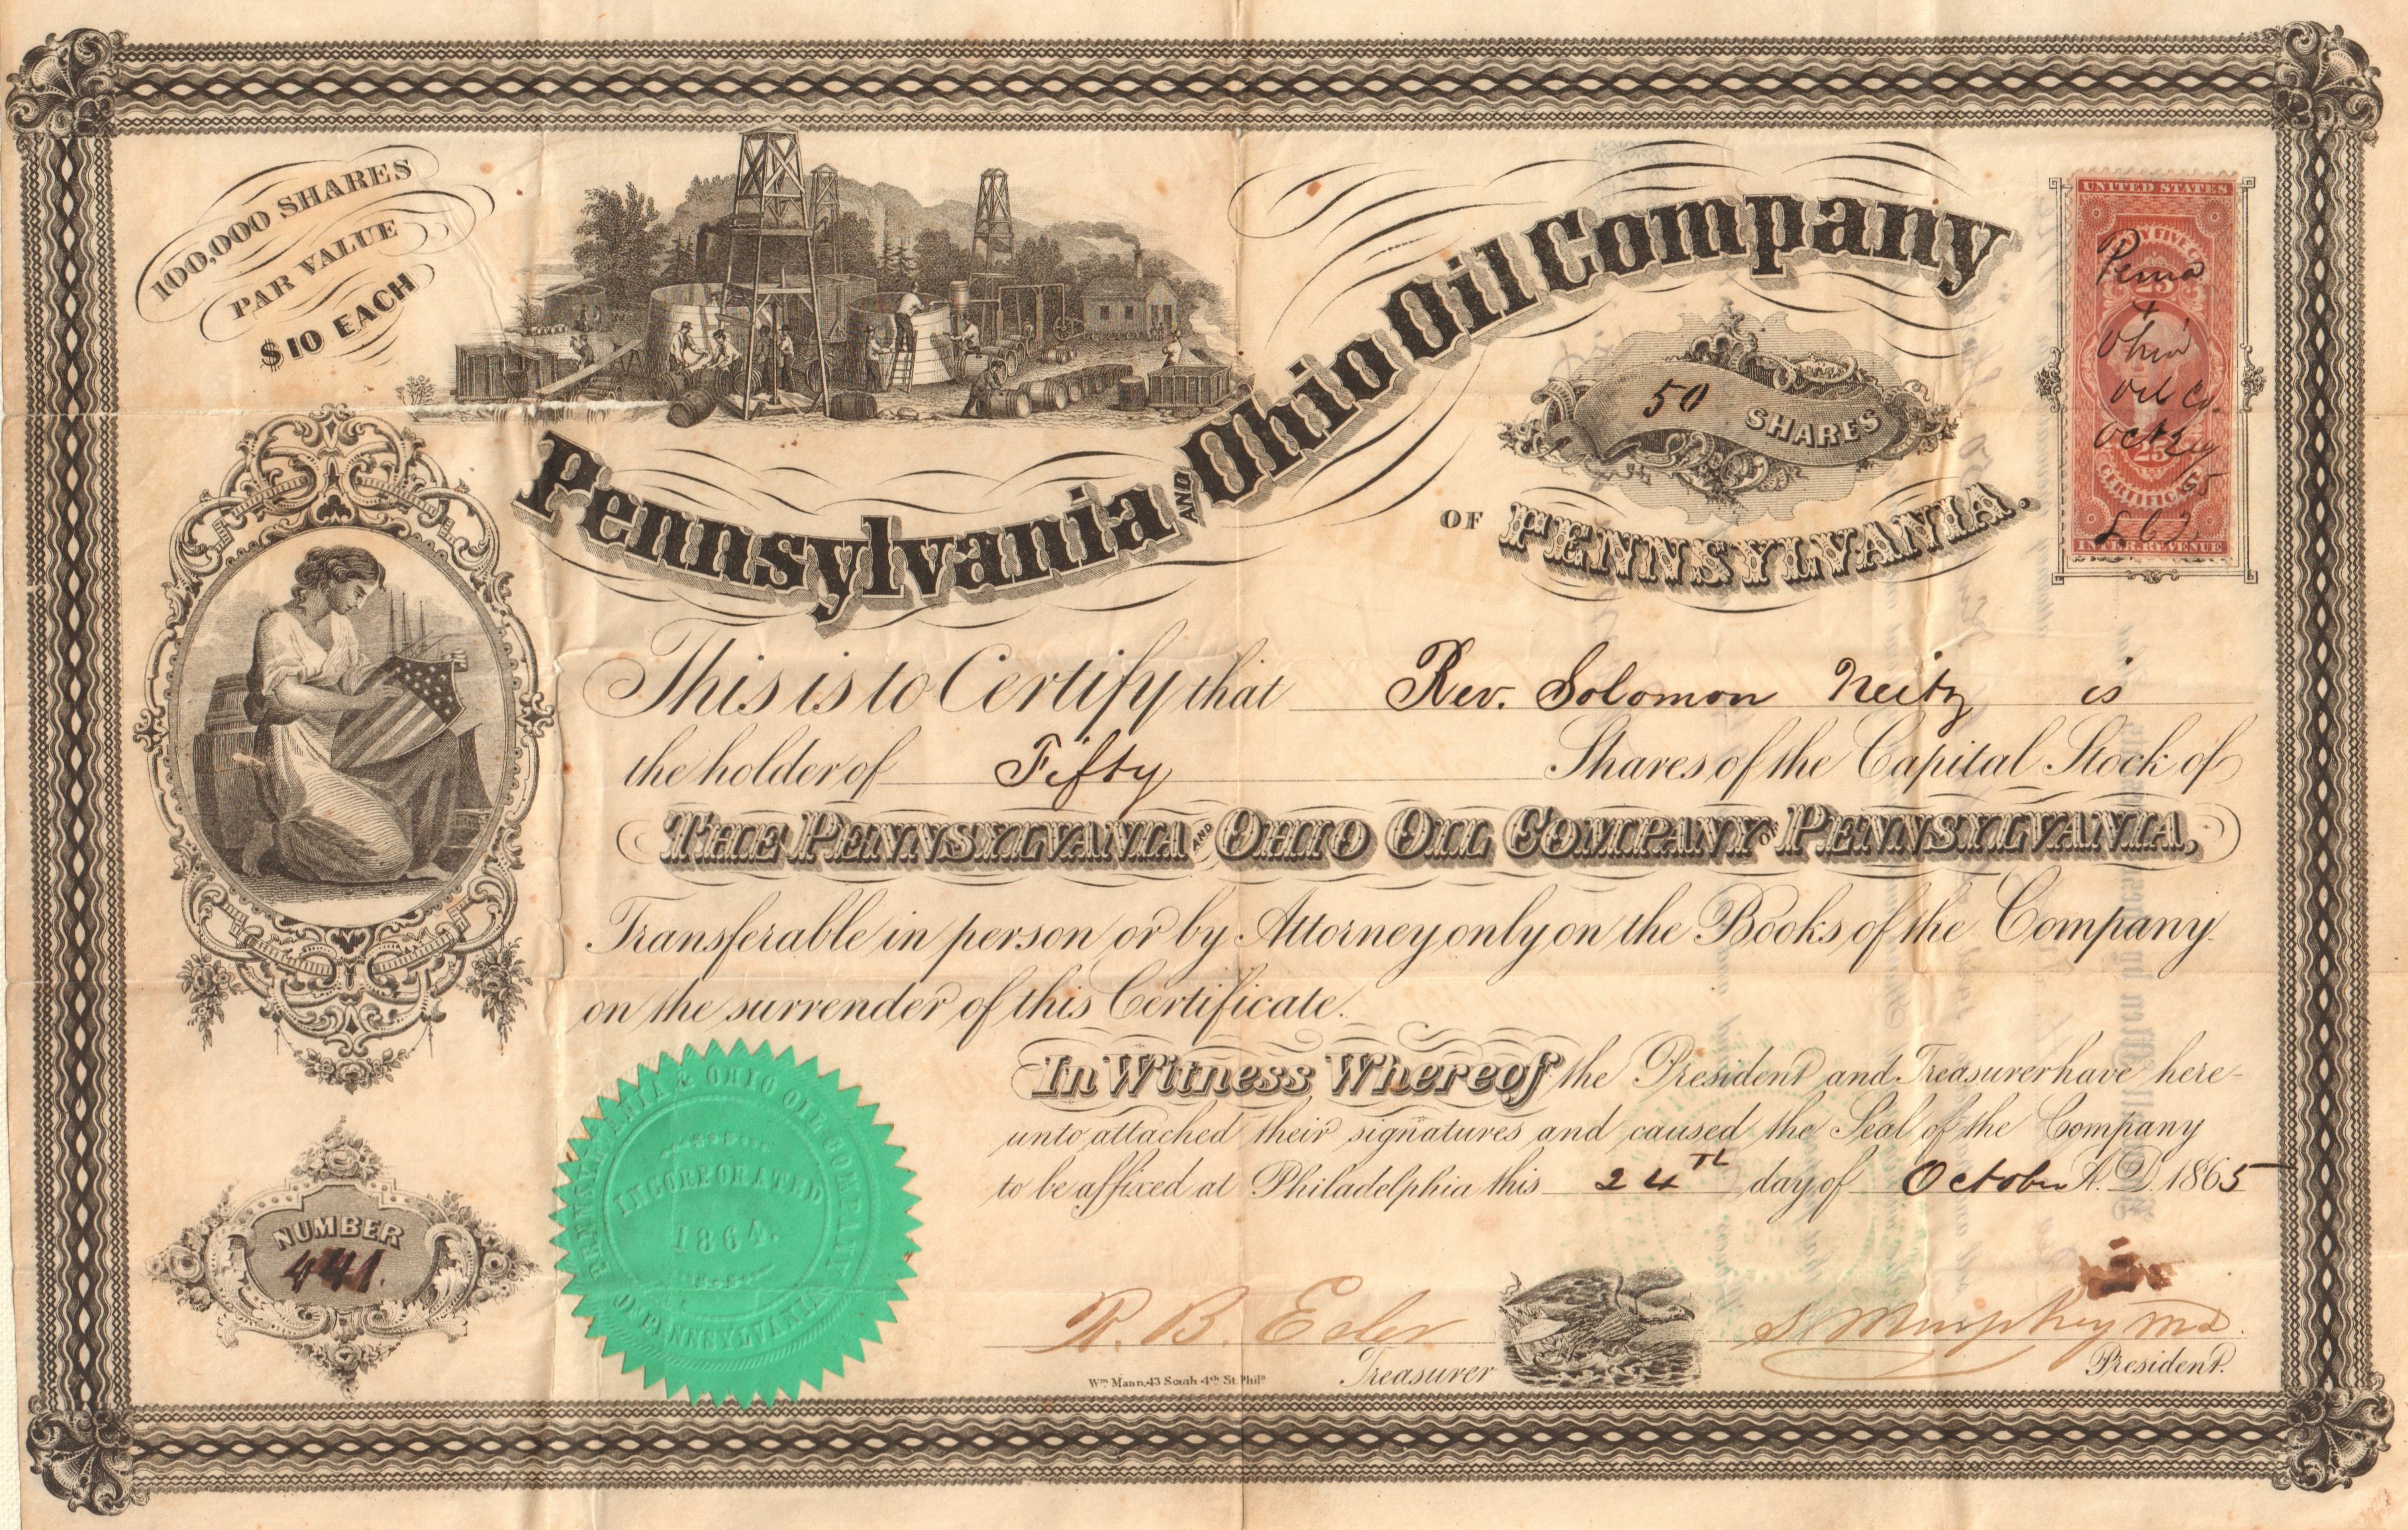 100,000 SHARES
PAR VALUE
$10 EACH
Pennsylvania AND Ohio Oil Company
50 SHARES
OF PENNSYLVANIA.
UNITED STATES
25
Penna
+
Ohio
Oil Co.
Oct 24
65
25
CERTIFICATE
INTER. REVENUE
This is to Certify that Rev. Solomon Neitz is
the holder of Fifty Shares of the Capital Stock of
THE PENNSYLVANIA AND OHIO OIL COMPANY OF PENNSYLVANIA,
Transferable in person or by Attorney only on the Books of the Company
on the surrender of this Certificate.
In Witness Whereof the President and Treasurer have here-
unto attached their signatures and caused the Seal of the Company
to be affixed at Philadelphia this 24TH day of October A.D. 1865
PENNSYLVANIA & OHIO OIL COMPANY
INCORPORATED
1864.
OF PENNSYLVANIA
NUMBER
441.
R. B. Esler
Treasurer
S. Murphey MD.
President.
Wm. Mann, 43 South 4th St. Phila